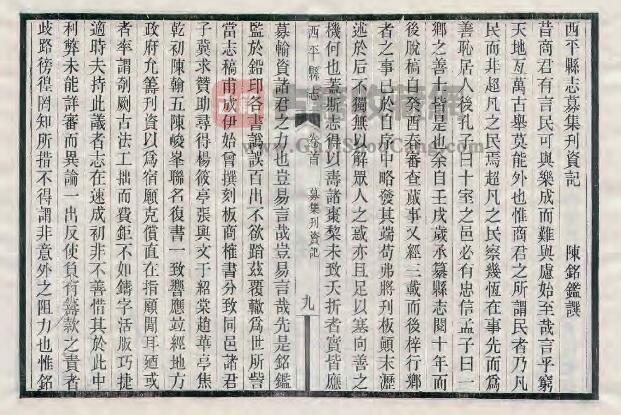 西平縣志募集刋資記
陳銘鑑譔
昔商君有言民可與樂成而難與慮始至哉言乎窮
天地亙萬古舉莫能外也惟商君之所謂民者乃凡
民而非超凡之民焉超凡之民察幾恆在事先而爲
善恥居人後孔子曰十室之邑必有忠信孟子曰一
鄉之善士皆是也余自壬戌歲承纂縣志閱十年而
後脫稿白癸酉春審查蕆事又經三載而後梓行鄉
者之事已於自序中略發其端茍弗將刋板顚末瀝
述於后不獨無以解眾人之惑亦且足以塞向善之
機何也蓋斯志得以壽諸棗棃未致夭折者實皆應
西平縣志
卷首
募集刋資記
九
募輸資諸君之力也豈易言哉豈易言哉先是銘鑑
監於鉛印各書譌誤百出不欲蹈茲覆轍爲世所訾
當志稿甫成伊始曾撰刻板商榷書分致同邑諸君
子冀求贊助尋得楊筱亭張興文于紹棠趙華亭焦
乾初陳翰五陳峻峯聯名復書一致響應竝經地方
政府允籌刋資以爲宿願克償直在指顧閒耳廼或
者率謂剞劂古法工拙而費鉅不如鑄字活版巧捷
適時夫持此議者志在速成初非不善惜其於此中
利弊未能詳審而異論一出反使負有籌款之責者
歧路徬徨罔知所措不得謂非意外之阻力也惟銘